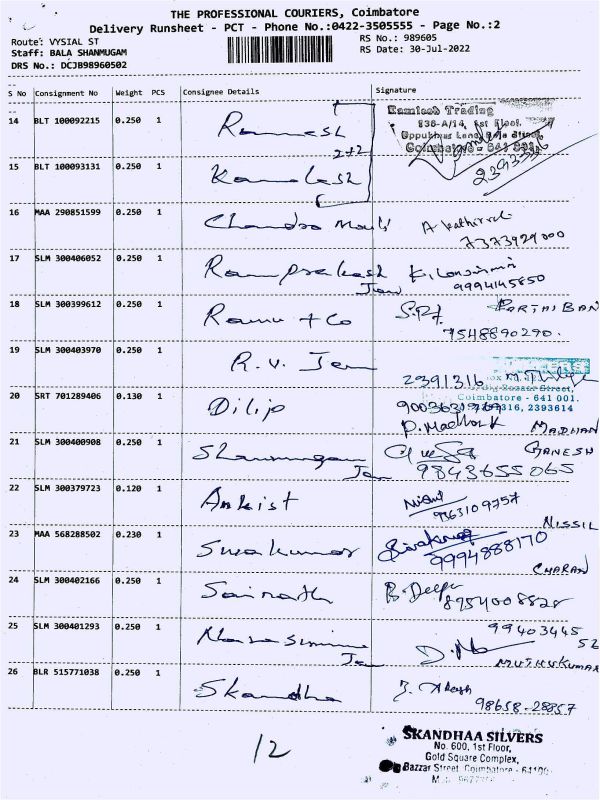 THE PROFESSIONAL COURIERS, Coimbatore
Delivery Runsheet - PCT - Phone No.:0422-3505555 - Page No.:2
Route: VYSIAL ST
RS No.: 989605
Staff: BALA SHANMUGAM
RS Date: 30-Jul-2022
DRS No.: DCJB98960502
S No Consignment No Weight PCS Consignee Details Signature
14 BLT 100092215 0.250 1 Ramesh
Kamlesh Trading
838-A/14, 1st Floor,
Coimbatore - 641
2+2
15 BLT 100093131 0.250 1 Kamalesh
16 MAA 290851599 0.250 1 Chandra Mouli A Kathirvel
7373929000
17 SLM 300406052 0.250 1 Ramprakash
Jew 9994145850
18 SLM 300399612 0.250 1 Ramu + Co PARTHIBAN
7548890290.
19 SLM 300403970 0.250 1 R.V. Jew
2391316
Bazaar Street,
Coimbatore - 641 001.
316, 2393614
20 SRT 701289406 0.130 1 Dilip
P. Madhan MADHAN
21 SLM 300400908 0.250 1 Shanmugam GANESH
Jew 9843655065
22 SLM 300379723 0.120 1 Ankist
9363109757
NISSIL
23 MAA 568288502 0.230 1 Sivakumar
9994888170
CHARAN
24 SLM 300402166 0.250 1 Sairath B. Deepa
8954008828
25 SLM 300401293 0.250 1 99403445
52
Jew MUTHUKUMAR
26 BLR 515771038 0.250 1 Skandha
98658-28857
12
SKANDHAA SILVERS
No. 600, 1st Floor,
Gold Square Complex,
Bazzar Street, Coimbatore - 64100